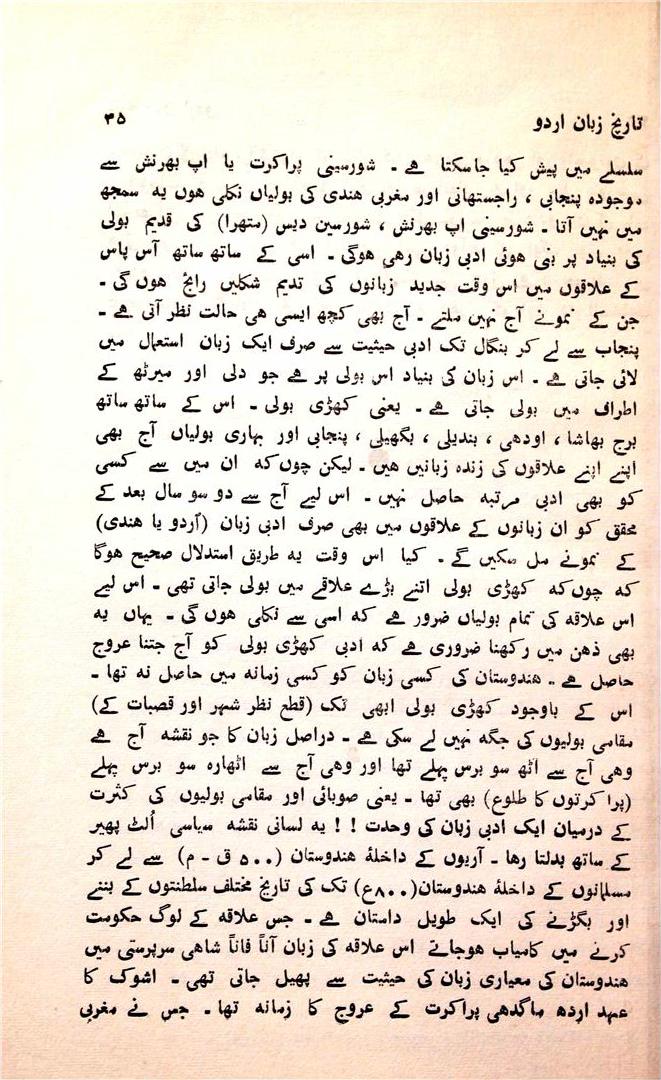 تاریخ زبان اردو
۳۵
سلسلے میں پیش کیا جاسکتا ہے ۔ شورسینی پراکرت یا اپ بھرنش سے
موجودہ پنجابی ، راجستھانی اور مغربی ھندی کی بولیاں نکلی ھوں یہ سمجھ
میں نہیں آتا ۔ شورسینی اپ بھرنش ، شورسین دیس (متھرا) کی قدیم بولی
کی بنیاد پر بنی ھوئی ادبی زبان رھی ھوگی ۔ اسی کے ساتھ ساتھ آس پاس
کے علاقوں میں اس وقت جدید زبانوں کی قدیم شکلیں رائج ھوں گی ۔
جن کے نمونے آج نہیں ملتے ۔ آج بھی کچھ ایسی ھی حالت نظر آتی ہے ۔
پنجاب سے لے کر بنگال تک ادبی حیثیت سے صرف ایک زبان استعمال میں
لائی جاتی ہے ۔ اس زبان کی بنیاد اس بولی پر ہے جو دلی اور میرٹھ کے
اطراف میں بولی جاتی ہے ۔ یعنی کھڑی بولی ۔ اس کے ساتھ ساتھ
برج بھاشا ، اودھی ، بندیلی ، بگھیلی ، پنجابی اور بہاری بولیاں آج بھی
اپنے اپنے علاقوں کی زندہ زبانیں ھیں ۔ لیکن چوں کہ ان میں سے کسی
کو بھی ادبی مرتبہ حاصل نہیں ۔ اس لیے آج سے دو سو سال بعد کے
محقق کو ان زبانوں کے علاقوں میں بھی صرف ادبی زبان (اُردو یا ھندی)
کے نمونے مل سکیں گے ۔ کیا اس وقت یہ طریق استدلال صحیح ھوگا
کہ چوں کہ کھڑی بولی اتنے بڑے علاقے میں بولی جاتی تھی ۔ اس لیے
اس علاقہ کی تمام بولیاں ضرور ہے کہ اسی سے نکلی ھوں گی ۔ یہاں یہ
بھی ذھن میں رکھنا ضروری ہے کہ ادبی کھڑی بولی کو آج جتنا عروج
حاصل ہے ۔ ھندوستان کی کسی زبان کو کسی زمانہ میں حاصل نہ تھا ۔
اس کے باوجود کھڑی بولی ابھی تک (قطع نظر شہر اور قصبات کے)
مقامی بولیوں کی جگہ نہیں لے سکی ہے ۔ دراصل زبان کا جو نقشہ آج ہے
وھی آج سے آٹھ سو برس پہلے تھا اور وھی آج سے اٹھارہ سو برس پہلے
(پراکرتوں کا طلوع) بھی تھا ۔ یعنی صوبائی اور مقامی بولیوں کی کثرت
کے درمیان ایک ادبی زبان کی وحدت ! ! یہ لسانی نقشہ سیاسی اُلٹ پھیر
کے ساتھ بدلتا رھا ۔ آریوں کے داخلۂ ھندوستان (۵۰۰ ق ۔ م) سے لے کر
مسلمانوں کے داخلۂ ھندوستان(۸۰۰ع) تک کی تاریخ مختلف سلطنتوں کے بننے
اور بگڑنے کی ایک طویل داستان ہے ۔ جس علاقہ کے لوگ حکومت
کرنے میں کامیاب ھوجاتے اس علاقہ کی زبان آناً فاناً شاھی سرپرستی میں
ھندوستان کی معیاری زبان کی حیثیت سے پھیل جاتی تھی ۔ اشوک کا
عہد اردھ ماگدھی پراکرت کے عروج کا زمانہ تھا ۔ جس نے مغربی